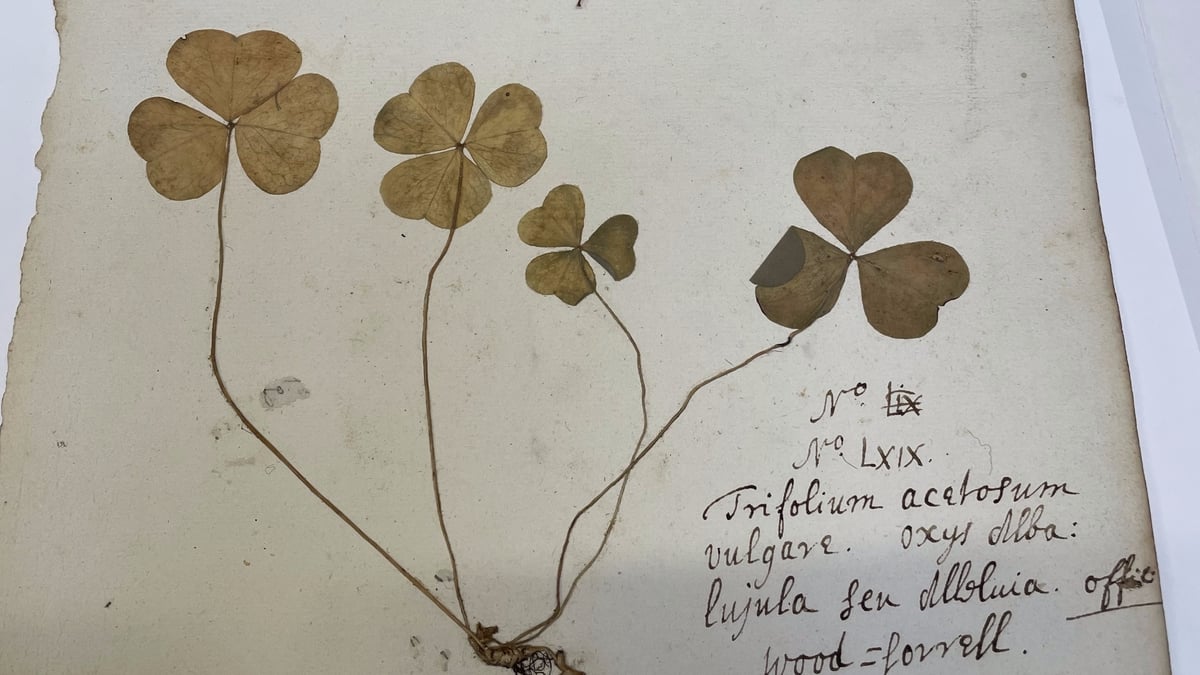 No. LIX
No. LXIX.
Trifolium acetosum
vulgare. Oxys Alba:
lujula seu Alleluia. offic
wood=sorrell.